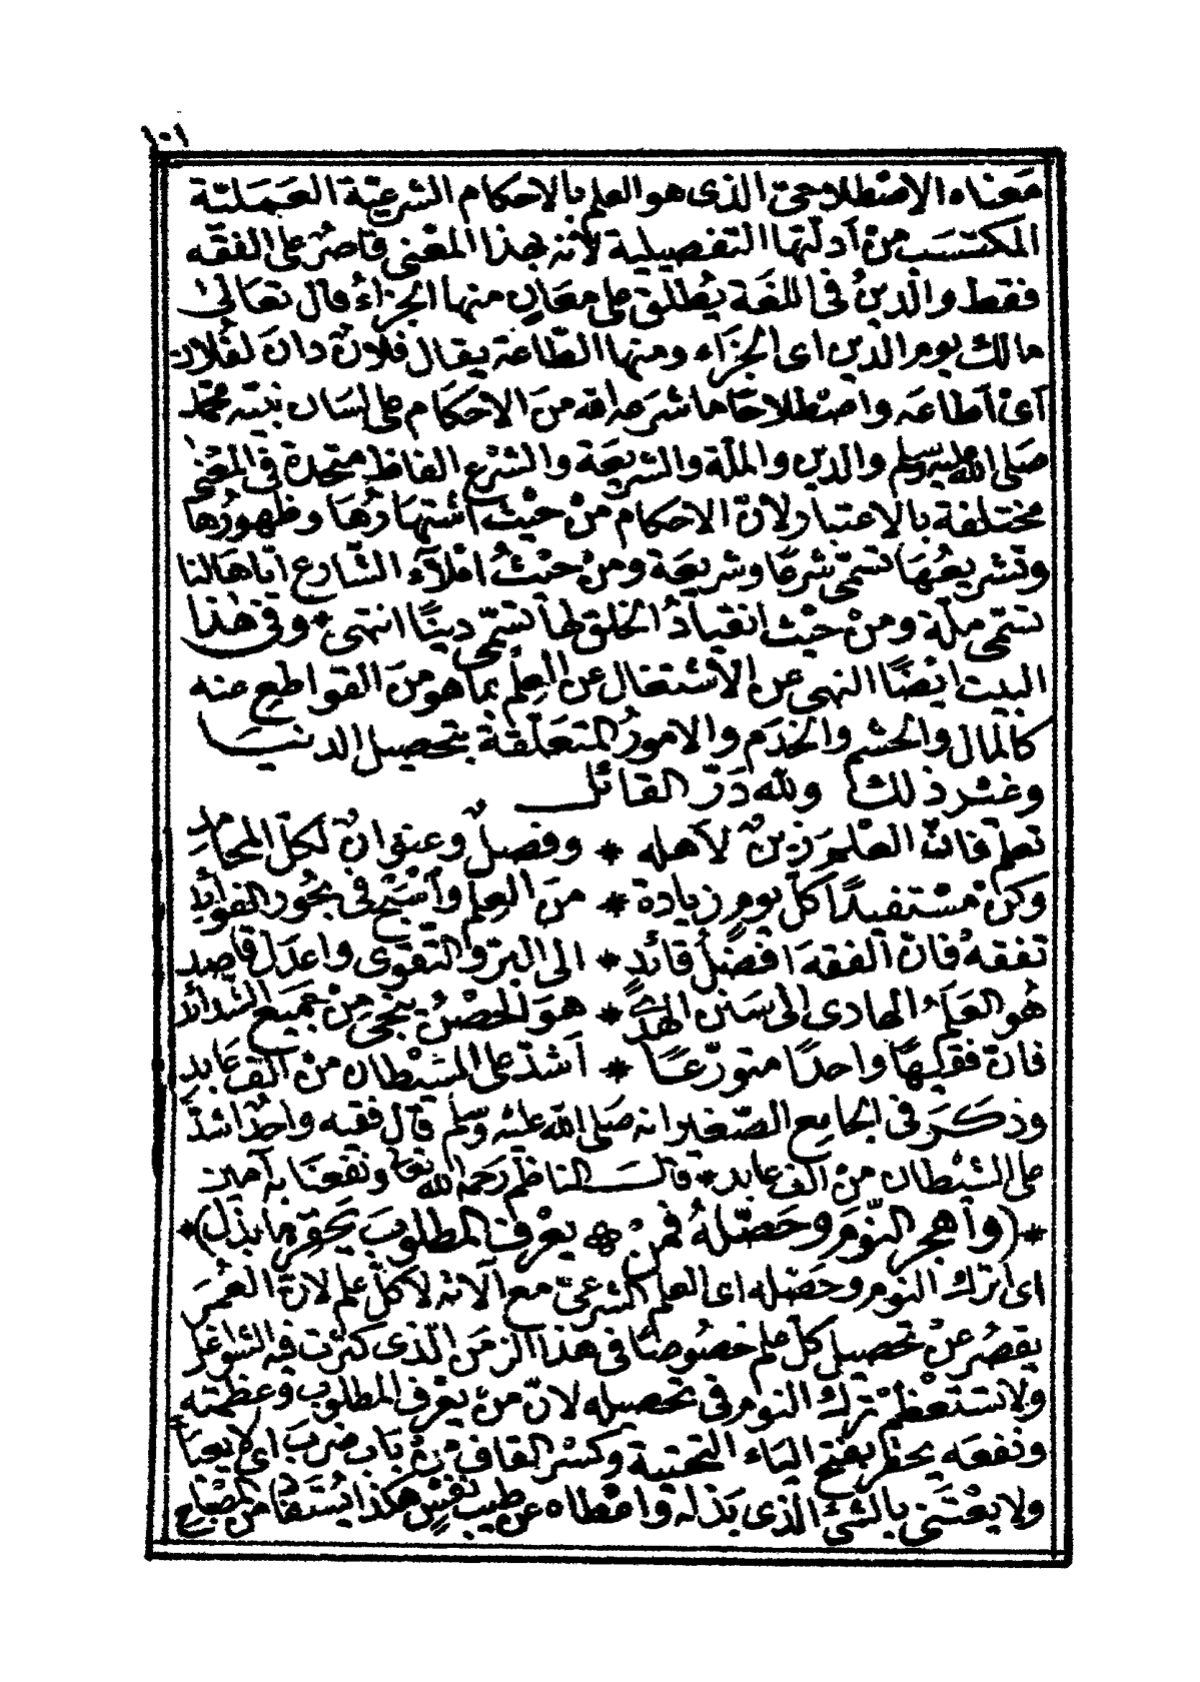 ١٠١
مَعناه الاصْطِلاحيّ الذى هو العلم بالاحكام الشرعيّة العَمَليّة
المكتسَب مِنْ أدلّتها التفصيلية لأنه بهذا المعْنى قاصرٌ على الفقه
فقط والدينُ فى اللغَة يُطلق على معَانٍ منها الجزاءُ قال تعَالىٰ
مالك يوم الدين اى الجزَاء ومنها الطّاعة يقال فلانٌ دانَ لفُلان
أىْ أطاعَه واصْطلاحًا ما شرَعه الله منَ الاحكام على لسَان نبيّه محمّد
صَلى الله عليه وسلم والدين والملّة والشريعَة والشرْع الفاظ متحدة فى المعْنىٰ
مختلفة بالاعتبار لأنّ الاحكام منْ حيْث اشتهَارُهَا وظهورُها
وتشريعُهَا تسَمّى شرعًا وشريعَة ومنْ حيْثُ املآء الشّارع ايّاهَا لنا
تسَمّى ملّة ومنْ حيْث انقيادُ الخلق لهَا تسَمّى دينًا انتهى * وفى هٰذا
البيت ايْضًا النهى عن الأشتغال عن العِلْم بمَا هو منَ القواطع عنه
كالمال والحشم والخدَم والامورُ المتعَلّقة بتحصيل الدنيَا
وغير ذلك وللّه دَرّ القائل
تعلّم فانّ العْلمَ زينٌ لأهله * وفضلٌ وعنوانٌ لكلّ المحَامِدِ
وكنْ مسْتفيدًا كلّ يومٍ زيادة * منَ العِلْم وأسْبَحْ فى بحُور الفوَائِد
تفقهْ فانّ الفقهَ افضَلُ قائدٍ * الى البرّ والتّقوى واعدَل قاصِد
هُو العَلَمُ الهَادى الى سَنن الهدَى * هوَ الحصْنُ ينجى منْ جَميع الشدائد
فانّ فقيهًا واحدًا متورّعًا * أشدّ على الشيْطان منْ الف عَابد
وذكَرَ فى الجامِع الصّغير انه صَلى الله عليْه وسَلم قال فقيه واحدٌ اشدّ
على الشيْطان منْ الف عابد * قالـَ الناظم رَحمه الله تعَالى ونفعَنَا به آمين
* (وأهجُر النّومَ وحَصّلهُ فمَنْ * يعْرف المطلوبَ يَحقر مَا بذل) *
اى اترك النوم وحَصّله اى العلم الشرعىّ مع آلاته لا كلّ علم لانّ العُمرَ
يقصُر عنْ تحصيل كلّ علم خصُوصًا فى هَذا الزمَن الّذى كثرَت فيه الشوَاغل
ولا تستعْظمْ ترك النوم فى تحصيله لانّ منْ يعْرف المطلوب وعظمَته
ونفعَه يحقر بفتح اليَاء التحتية وكسْر القاف منْ باب ضرَب اى لا يعبَأ
ولا يعْتَنى بالشىْء الّذى بَذله واعْطاه عن طيب نفسٍ هكذا يُستَفادُ من المصْبَاح